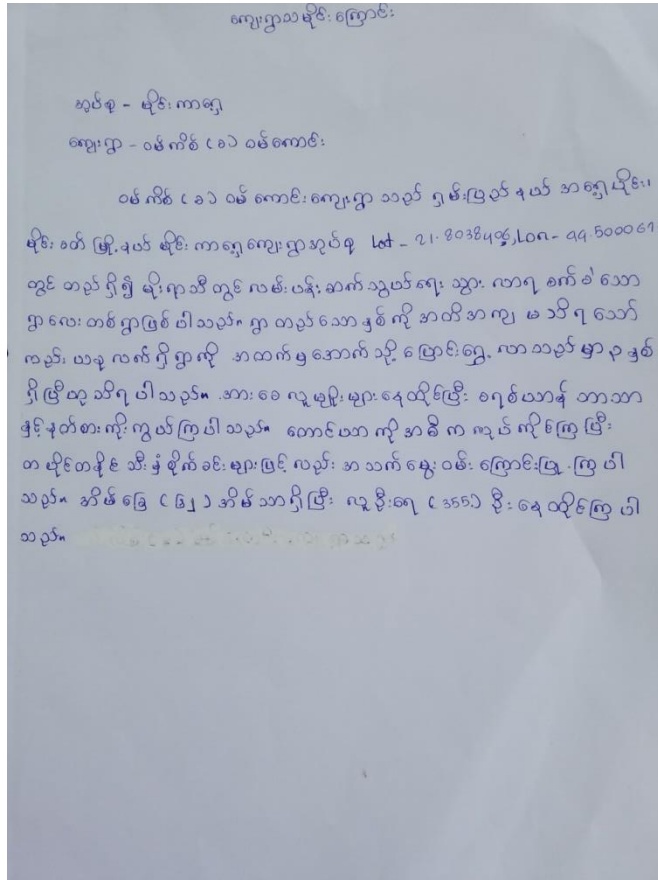 ကျေးရွာသမိုင်းကြောင်း
အုပ်စု - မိုင်းကာရှေ့
ကျေးရွာ - ဝမ်ကိစ် (ခ) ဝမ်ကောင်း
ဝမ်ကိစ် (ခ) ဝမ်ကောင်းကျေးရွာသည် ရှမ်းပြည်နယ် အရှေ့ပိုင်း၊
မိုင်းခတ်မြို့နယ် မိုင်းကာရှေ့ကျေးရွာအုပ်စု Lat - 21.8038406, Lon - 99.500067
တွင် တည်ရှိ၍ မိုးရာသီတွင် လမ်းပန်းဆက်သွယ်ရေး သွားလာရ ခက်ခဲသော
ရွာလေးတစ်ရွာဖြစ်ပါသည်။ ရွာတည်သောနှစ်ကို အတိအကျ မသိရသော်
လည်း ယခုလက်ရှိရွာကို အထက်မှအောက်သို့ ပြောင်းရွှေ့လာသည်မှာ ၃ နှစ်
ရှိပြီဟု သိရပါသည်။ အားခေ လူမျိုးများနေထိုင်ပြီး ခရစ်ယာန် ဘာသာ
နှင့်နတ်စားကိုးကွယ်ကြပါသည်။ တောင်ယာကို အဓိကလုပ်ကိုင်ကြပြီး
တပိုင်တနိုင် သီးနှံစိုက်ခင်းများဖြင့်လည်း အသက်မွေးဝမ်းကြောင်းပြုကြပါ
သည်။ အိမ်ခြေ အိမ်သာရှိပြီး လူဦးရေ (355) ဦး နေထိုင်ကြပါ
သည်။